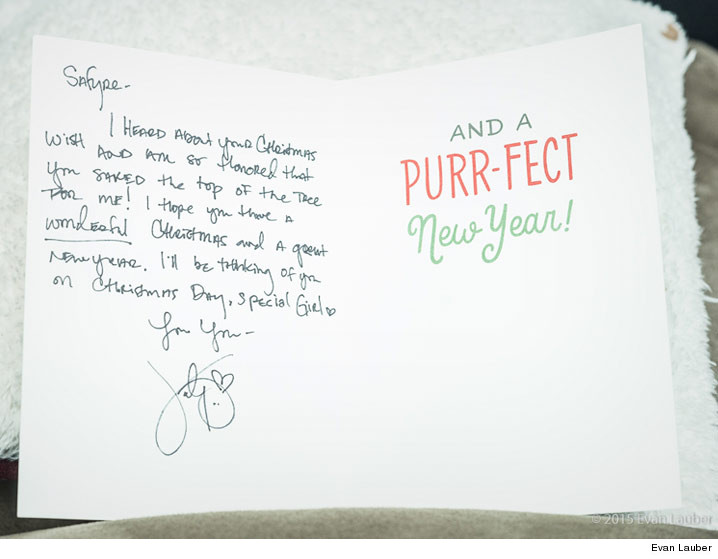 Safyre-
I HEARD ABOUT your CHRISTMAS
WISH AND AM so Honored that
you SAVED the top of the TREE
FOR ME! I Hope you Have A
wonderful CHRISTMAS and A great
NEW YEAR. I'll be thinking of you
on CHRISTMAS DAY, special GIRL♡
AND A
PURR-FECT
New Year!
© 2015 Evan Lauber
Evan Lauber